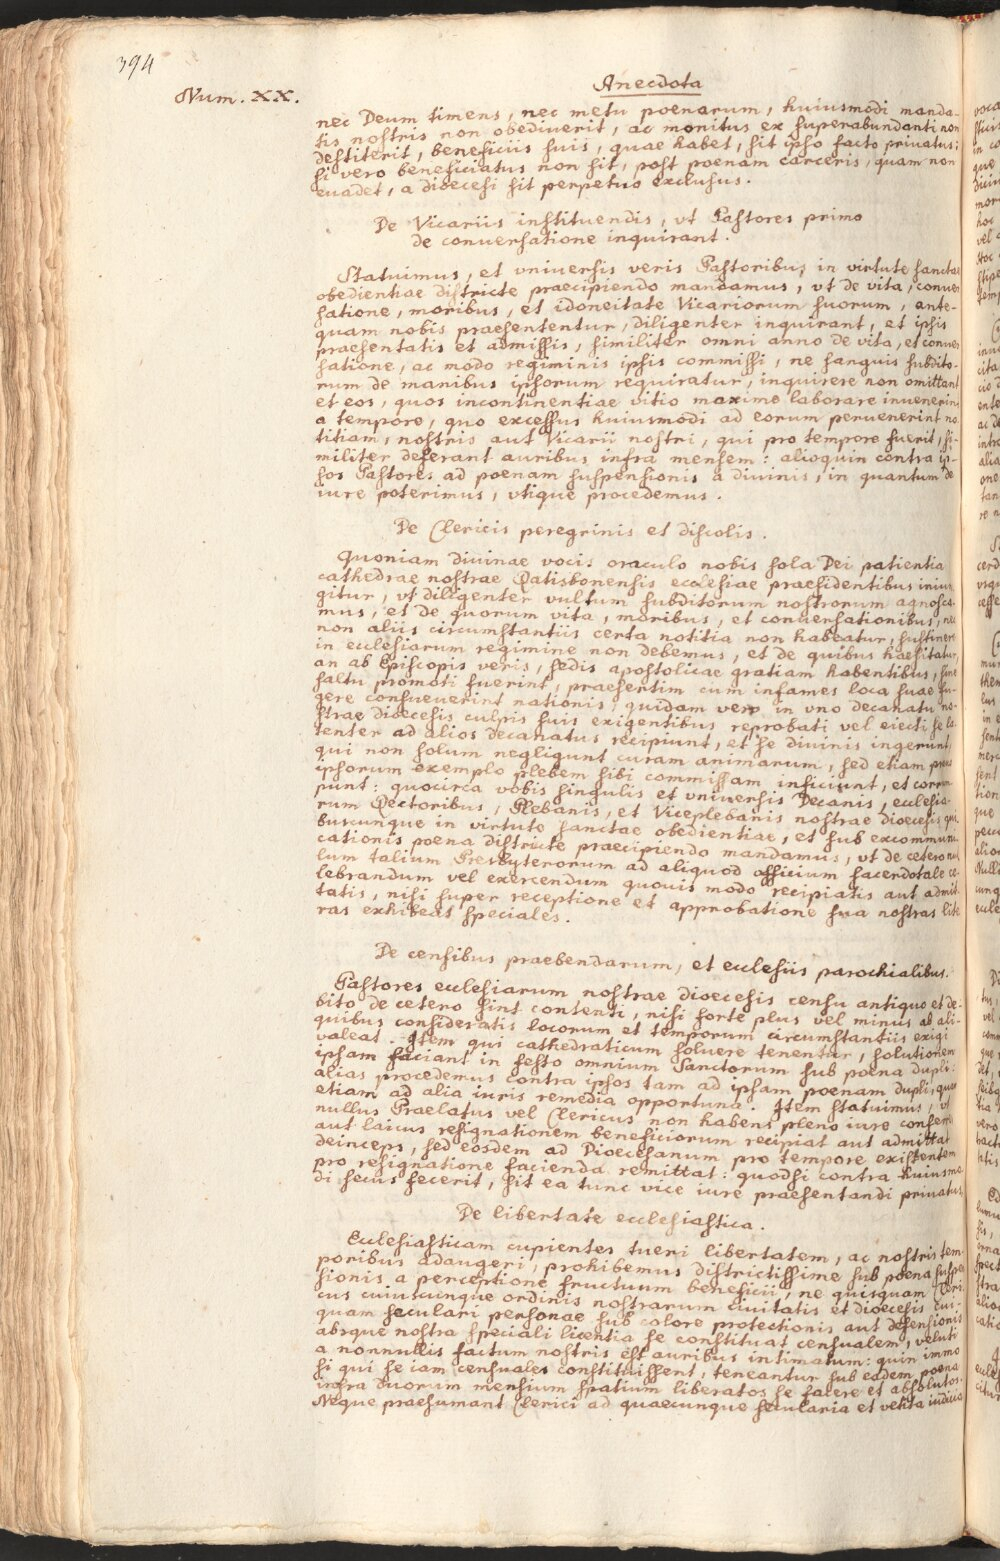 394
Num. XX.
Anecdota
nec Deum timens, nec metu poenarum, huiusmodi manda-
tis nostris non obediuerit, ac monitus ex superabundanti non
destiterit, beneficiis suis, quae habet, sit ipso facto priuatus;
si vero beneficiatus non sit, post poenam carceris, quam non
euadet, a dioecesi sit perpetuo exclusus.
De Vicariis instituendis, vt Pastores primo
de conuersatione inquirant.
Statuimus, et vniuersis veris Pastoribus in virtute sanctae
obedientiae districte praecipiendo mandamus, vt de vita, conuer
satione, moribus, et idoneitate Vicariorum suorum, ante-
quam nobis praesententur, diligenter inquirant, et ipsis
praesentatis et admissis, similiter omni anno de vita, et conuer
satione, ac modo regiminis ipsis commissi, ne sanguis subdito-
rum de manibus ipsorum requiratur, inquirere non omittant
et eos, quos incontinentiae vitio maxime laborare inuenerint
a tempore, quo excessus huiusmodi ad eorum peruenerint no
titiam, nostris aut Vicarii nostri, qui pro tempore fuerit, si-
militer deferant auribus infra mensem: alioquin contra ip-
sos Pastores ad poenam suspensionis a diuinis, in quantum de
iure poterimus, vtique procedemus.
De Clericis peregrinis et discolis.
Quoniam diuinae vocis oraculo nobis sola Dei patientia
cathedrae nostrae Ratisbonensis ecclesiae praesidentibus iniun
gitur, vt diligenter vultum subditorum nostrorum agnosca-
mus, et de quorum vita, moribus, et conuersationibus, nec
non aliis circumstantiis certa notitia non habeatur, sustinere
in ecclesiarum regimine non debemus, et de quibus haesitatur,
an ab Episcopis veris, sedis apostolicae gratiam habentibus, sine
saltu promoti fuerint, praesertim cum infames loca suae fu-
gere consueuerint nationis, quidam vero in vno decanatu no-
strae dioecesis culpis suis exigentibus reprobati vel eiecti se la-
tenter ad alios decanatus recipiunt, et se diuinis ingerunt,
qui non solum negligunt curam animarum, sed etiam prauo
ipsorum exemplo plebem sibi commissam inficiunt, et corrum
punt: quocirca vobis singulis et vniuersis Decanis, ecclesia-
rum Rectoribus, Plebanis, et Viceplebanis nostrae dioecesis qui
buscunque in virtute sanctae obedientiae, et sub excommuni
cationis poena districte praecipiendo mandamus, vt de cetero nul
lum talium Presbyterorum ad aliquod officium sacerdotale ce-
lebrandum vel exercendum quouis modo recipiatis aut admit
tatis, nisi super receptione et approbatione sua nostras lite
ras exhibeat speciales.
De censibus praebendarum, et ecclesiis parochialibus.
Pastores ecclesiarum nostrae dioecesis censu antiquo et de-
bito de cetero sint contenti, nisi forte plus vel minus ab ali-
quibus consideratis locorum et temporum circumstantiis exigi
valeat. Item qui cathedraticum soluere tenentur, solutionem
ipsam faciant in festo omnium Sanctorum sub poena dupli:
alias procedemus contra ipsos tam ad ipsam poenam dupli, quam
etiam ad alia iuris remedia opportuna. Item statuimus, vt
nullus Praelatus vel Clericus non habens pleno iure conferre
aut laicus resignationem beneficiorum recipiat aut admittat
deinceps, sed eosdem ad Dioecesanum pro tempore existentem
pro resignatione facienda remittat: quodsi contra huiusmo
di secus fecerit, sit ea tunc vice iure praesentandi priuatus.
De libertate ecclesiastica.
Ecclesiasticam cupientes tueri libertatem, ac nostris tem-
poribus adaugeri, prohibemus districtissime sub poena suspen
sionis a perceptione fructuum beneficii, ne quisquam Cleri-
cus cuiuscunque ordinis nostrarum ciuitatis et dioecesis cui-
quam seculari personae sub colore protectionis aut defensionis
absque nostra speciali licentia se constituat censualem, veluti
a nonnullis factum nostris est auribus intimatum: quin immo
si qui se iam censuales constituissent, teneantur sub eadem poena
infra duorum mensium spatium liberatos se facere et absolutos.
Neque praesumant Clerici ad quaecunque secularia et vetita iudicia